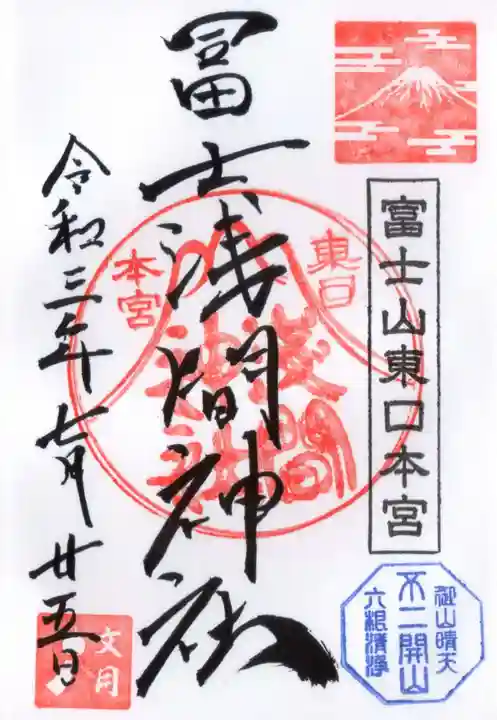 富士山東口本宮
御山晴天
不二開山
六根清浄
冨士浅間神社
東口
本宮
浅間
神社
令和三年七月廿五日
文月